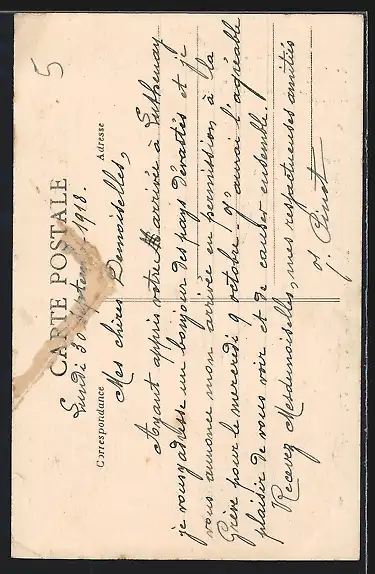 5
CARTE POSTALE
Correspondance
Adresse
Lundi 30 Septembre 1918.
Mes chères Demoiselles,
Ayant appris votre arrivée à
je vous adresse un bonjour des pays dévastés et je
vous annonce mon arrivée en permission à la
Grève pour le mercredi 9 octobre. J'aurai l'agréable
plaisir de vous voir et de causer ensemble.
Recevez Mesdemoiselles, mes respectueuses amitiés
J. Pinot